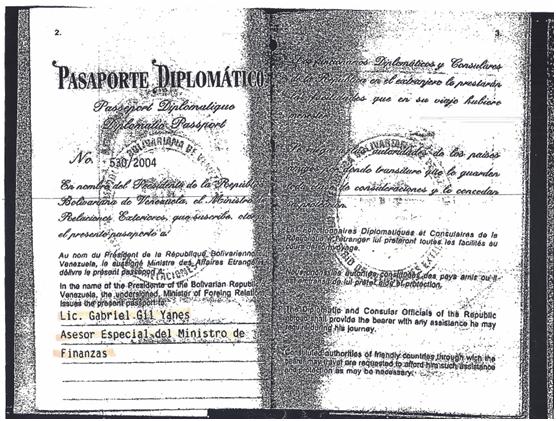 2.
PASAPORTE DIPLOMÁTICO
Passeport Diplomatique
Diplomatic Passport
No. 530/2004
En nombre del Presidente de la Repúbl
Bolivariana de Venezuela, el Ministro
Relaciones Exteriores, que suscribe, otor
el presente pasaporte a:
Au nom du Président de la République Bolivarienn
Venezuela, le Ministre des Affaires Etrange
délivre le présent passeport A:
In the name of the Presidente of the Bolivarian Republ
Venezuela, the undersigned, Minister of Foreing Relati
issues the present passport to:
Lic. Gabriel Gil Yanes
Asesor Especial del Ministro de
Finanzas
3.
Los funcionarios Diplomáticos y Consulares
de la República en el extranjero le prestarán
que en su viaje hubiere
autoridades de los países
donde transitare que le guarden
consideraciones y le concedan
Diplomatiques et Consulaires de la
l'étranger lui prêteront toutes les facilités au
voyage.
autorités constituées des pays amis ou il
lui prêter aide et protection.
The Diplomatic and Consular Officials of the Republic
provide the bearer with any assistance he may
his journey.
Constituted authorities of friendly countries through wich the
are requested to afford him such assistance
and protection as may be necessary.